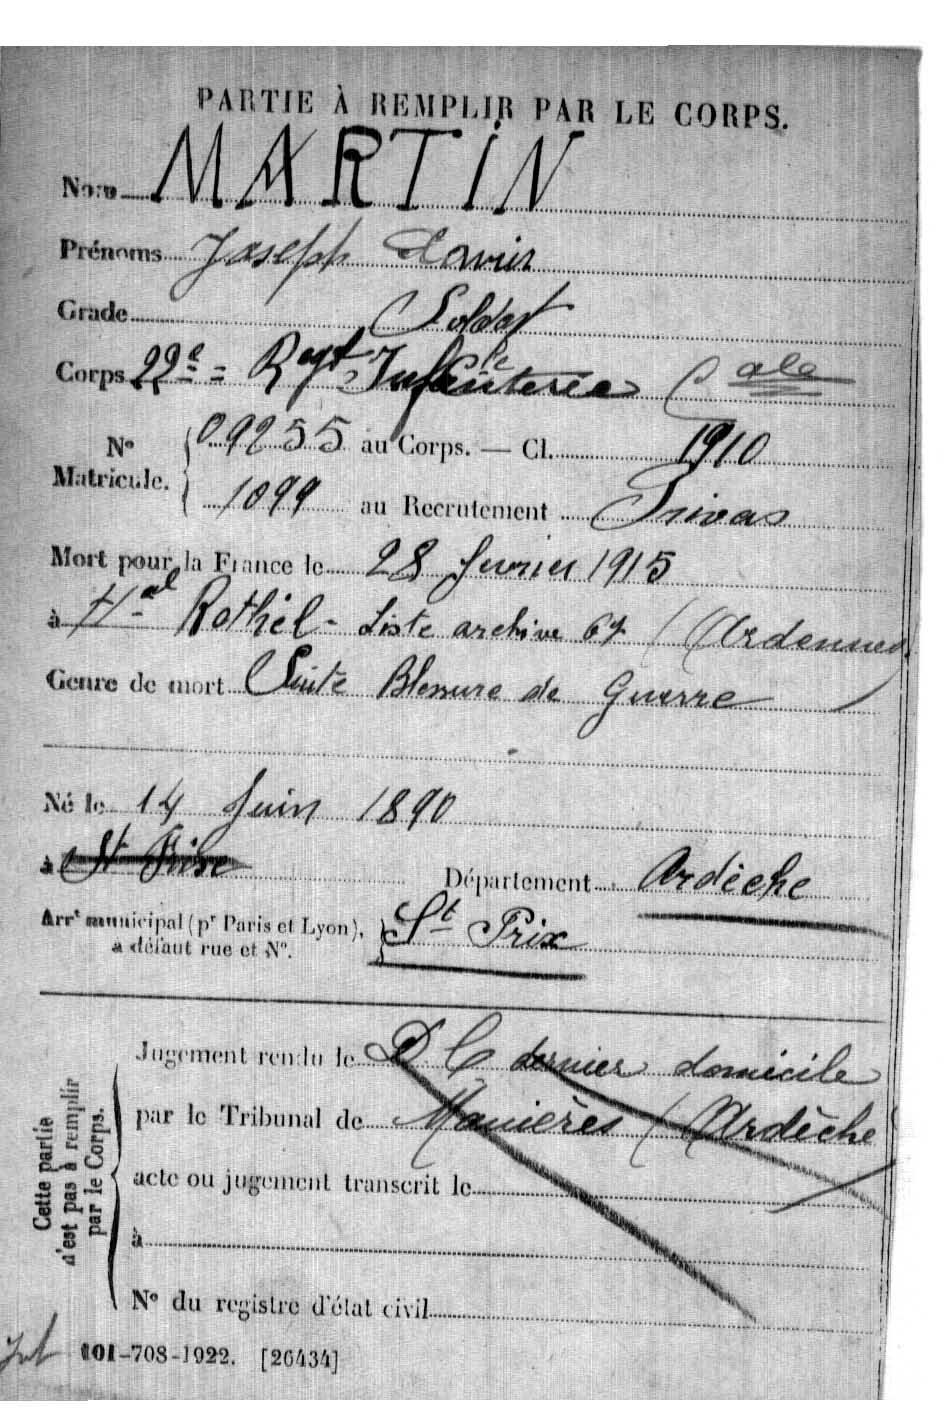 PARTIE À REMPLIR PAR LE CORPS.
Nom MARTIN
Prénoms Joseph Xavier
Grade Soldat
Corps 22e = Regt Infanterie Cale
No Matricule. 09255 au Corps. — Cl. 1910
1099 au Recrutement Privas
Mort pour la France le 28 fevrier 1915
à Hal Rethel - Liste archive 67 (Ardennes)
Genre de mort Suite Blessure de Guerre
Né le 14 Juin 1890
à St Département Ardèche
Arrt municipal (pr Paris et Lyon), à défaut rue et No. St Prix
Jugement rendu le D C dernier domicile
par le Tribunal de (Ardèche)
acte ou jugement transcrit le
à
No du registre d'état civil
Cette partie n'est pas à remplir par le Corps.
101-708-1922. [26434]